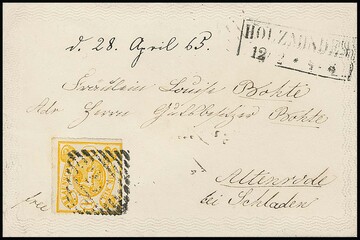 d. 28. April 65.
HOLZMIND
12
Fräulein Louise Bohte
Adr. Herrn Gutsbesitzer Bohte
Altenrode
bei Schladen
frei